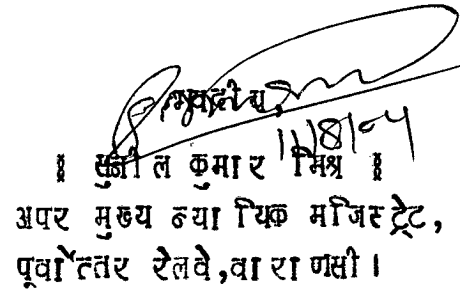 भवदीय,
11/8/04
॥ सुनील कुमार मिश्र ॥
अपर मुख्य न्यायिक मजिस्ट्रेट,
पूर्वोत्तर रेलवे,वाराणसी।